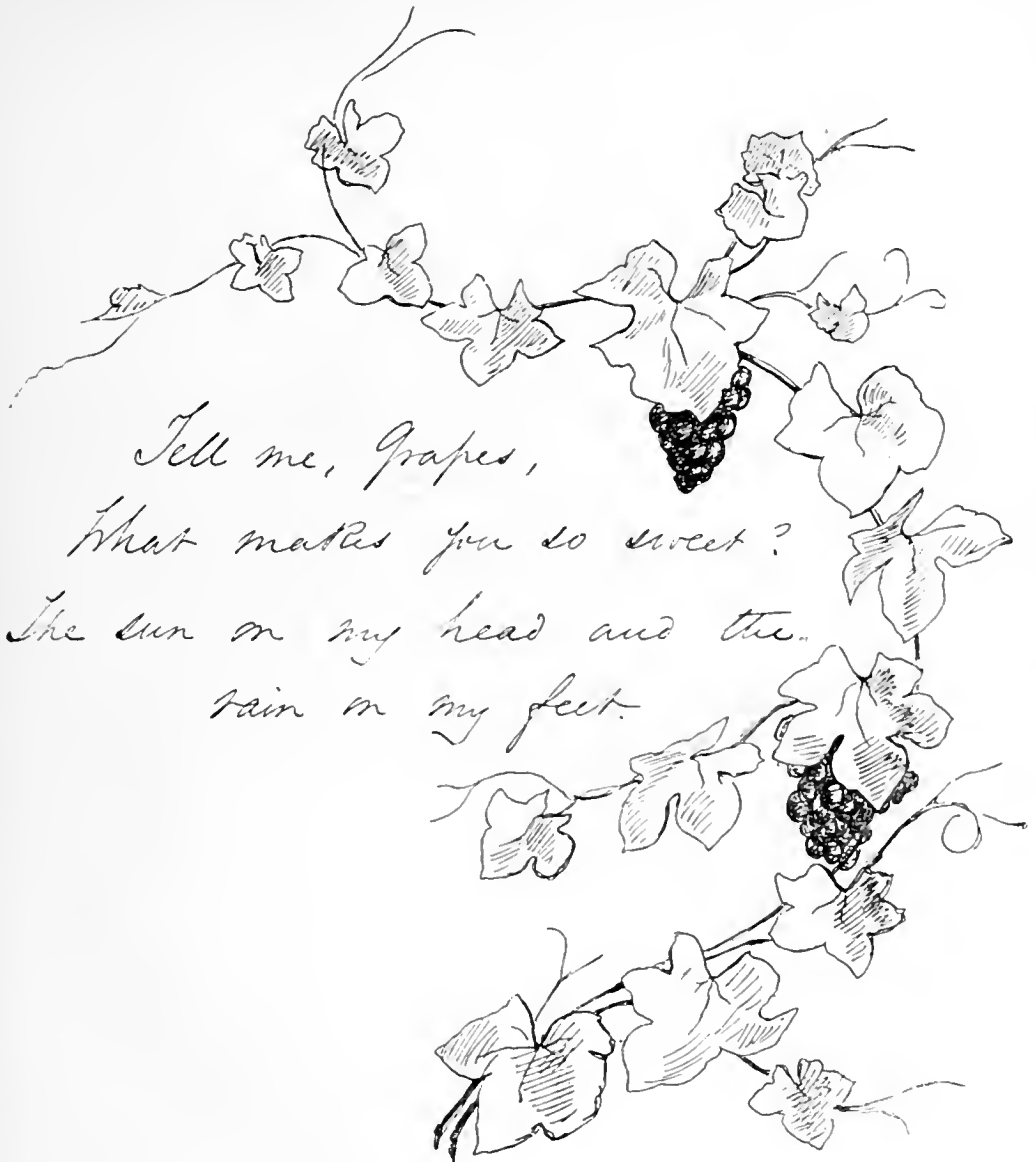 Tell me, Grapes,
What makes you so sweet?
The sun on my head and the
rain on my feet.